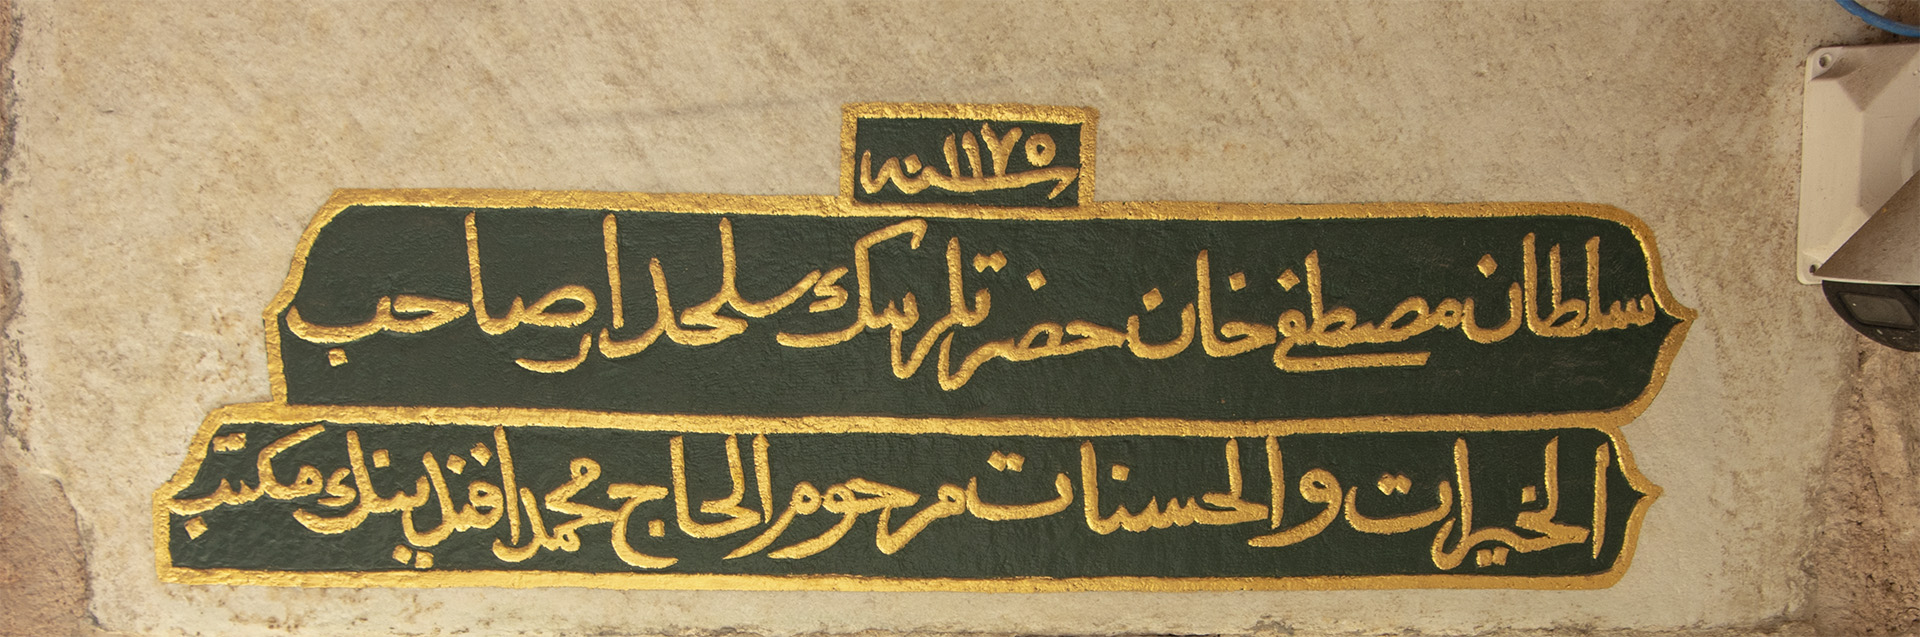 سنه ١١٧٥
سلطان مصطفى خان حضرتلرينك سلحدار صاحب
الخيرات والحسنات مرحوم الحاج محمد افندينك مكتب